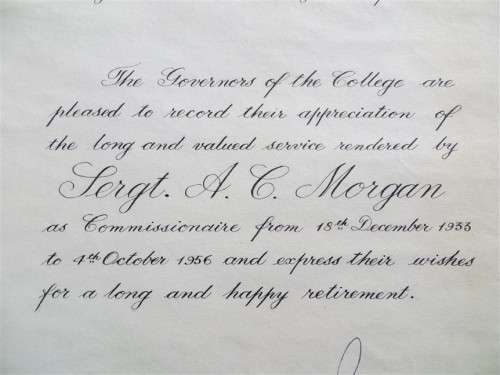 The Governors of the College are
pleased to record their appreciation of
the long and valued service rendered by
Sergt. A. C. Morgan
as Commissionaire from 18th December 1933
to 4th October 1956 and express their wishes
for a long and happy retirement.